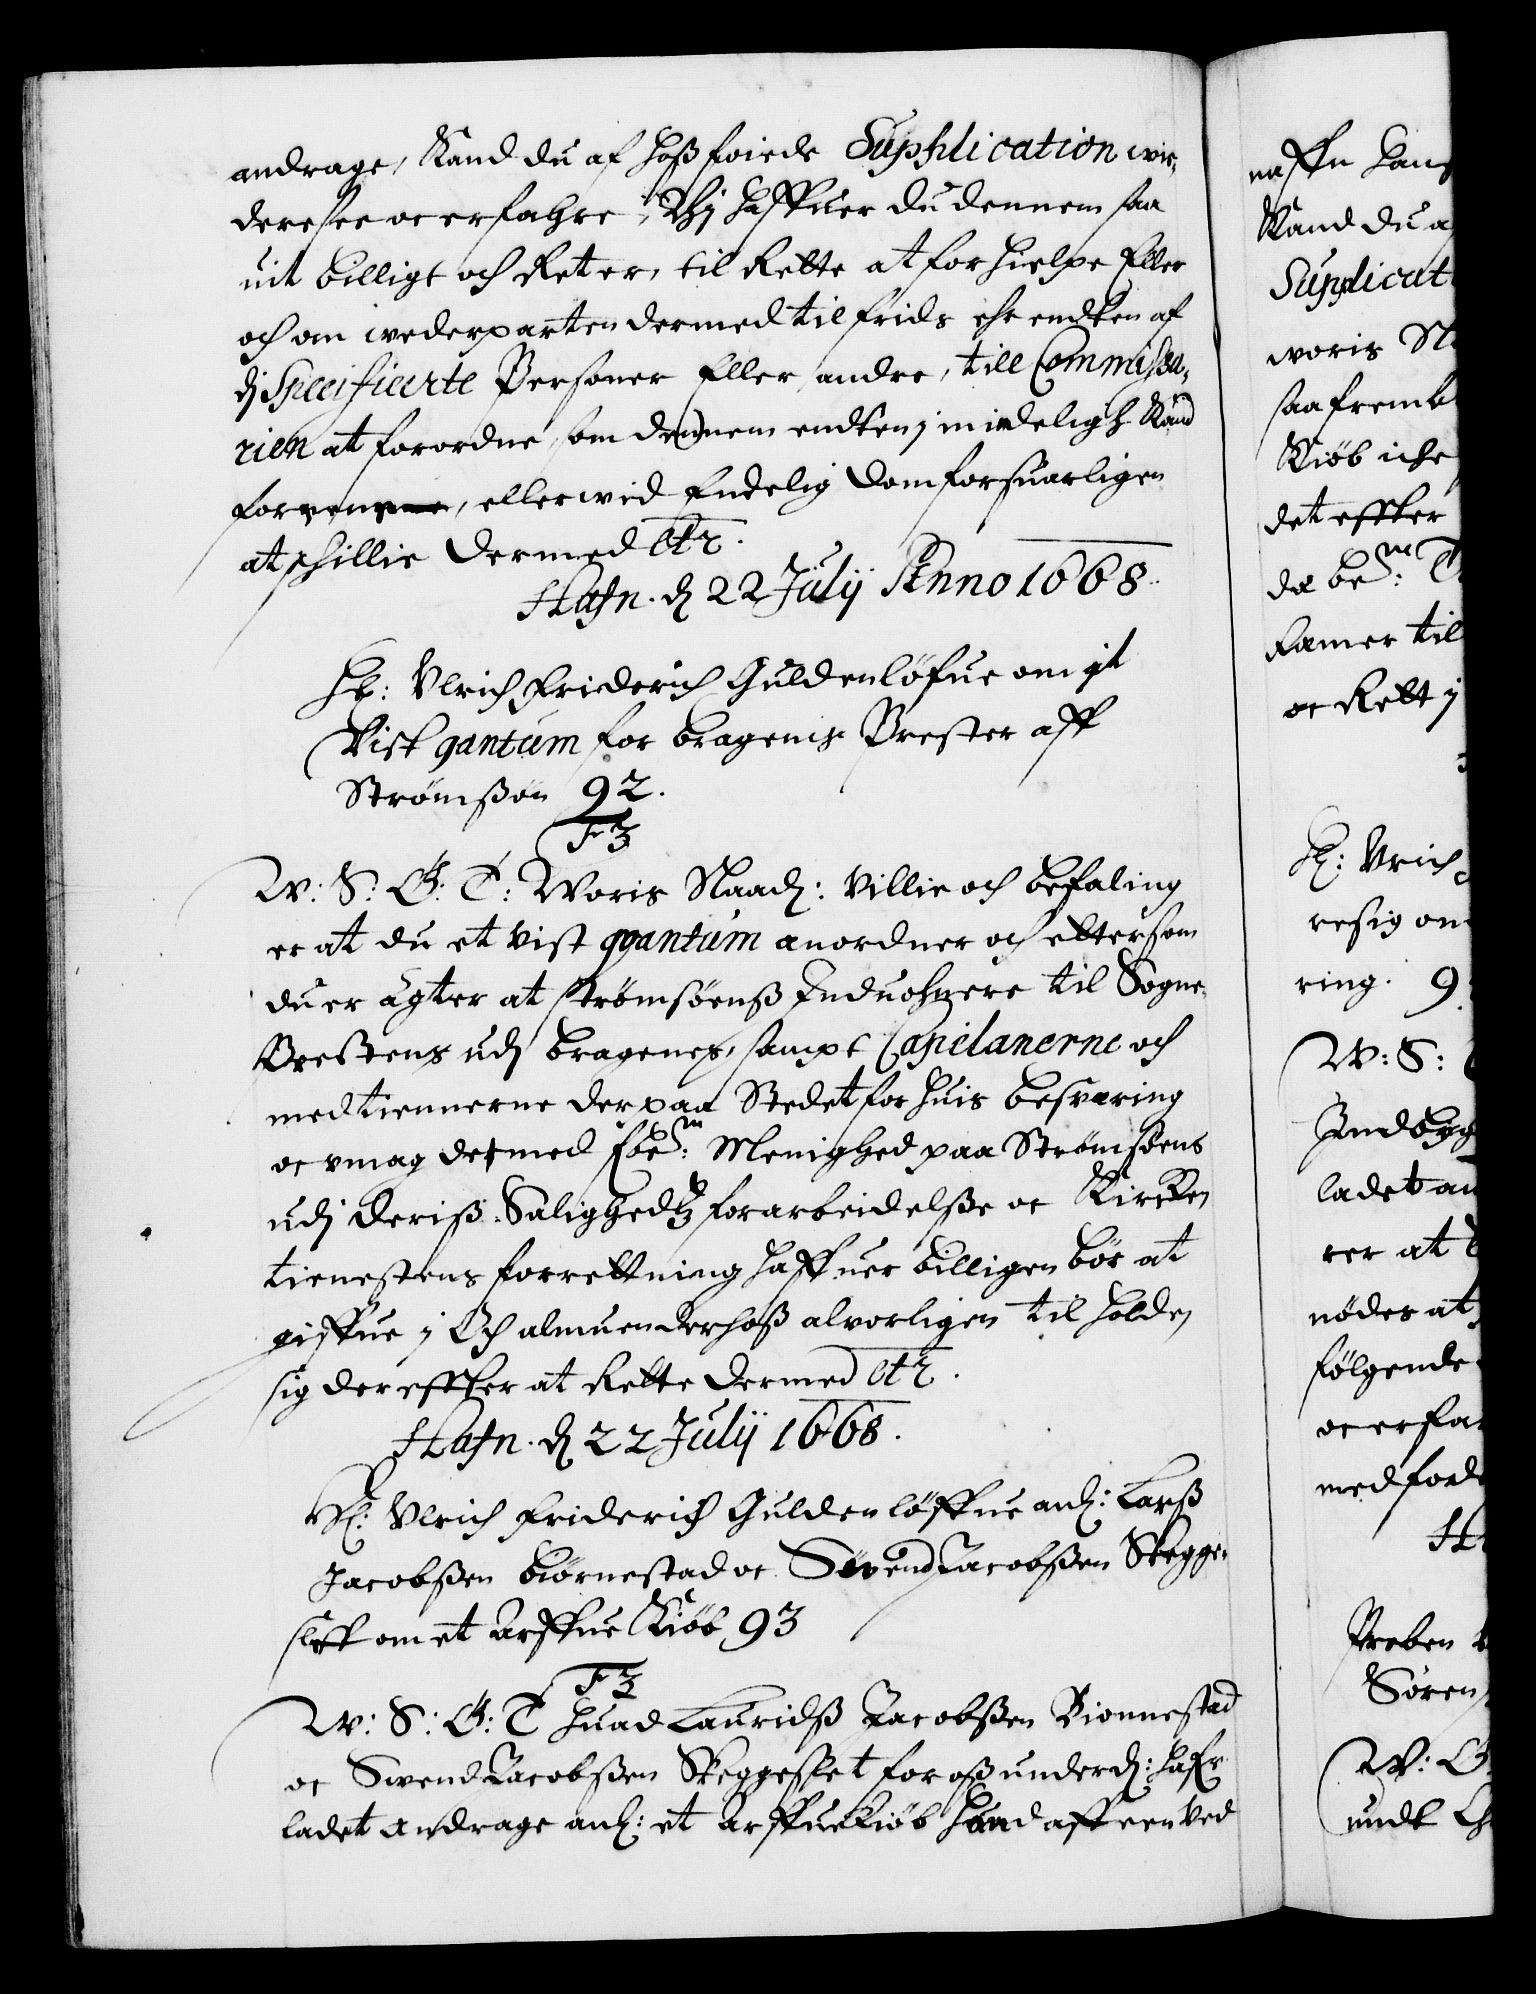 andrage, Kand du af hoßføiede Supplication vi-
dere see oc erfahre, Thj haffuer du dennem saa
uit billigt och Ret er, til Rette at forhielpe Eller
och om wederparten dermed til frids ehr endten af
dj Specificerte Personer Eller andre, till Commissa-
rien at forordne, som dennem endten j mindeligh Kand
foreene, eller wid Endelig dom forsuarligen
at schillie Dermed etc.
Hafn. d 22 Julij Anno 1668.
H: Vlrich Friderich Guldenløfue om it
Vist qantum for bragenis Prester aff
Strømsøn 92.
F3
W: S: G: T: Woris Naad: Villie och befaling
er at du et vist qvantum anordner och eftersom
du er agter at Strømsøens Induohnere til Sogne-
Prestens udj bragenes, sampt Capelanerne och
medtiennerne der paa Stedet for huis besværing
oc vmag de med be.m: Menighed paa Strømsøens
udj deris Salighedz forarbeidelse oc Kircken
tienestens forrettning haffuer billigen bør at
giffue j Och almuen derhoß alvorligen til holder
sig der effter at Rette Dermed etc.
Hafn. d 22 Julij 1668.
H: Vlrich Friderich Guldenløffue anl: Larß
Jacobßen biørnestad oc Swend Jacobßen Skegge-
stet om et Arffue Kiøb 93
F3
W: S: G: T Huad Lauridß Jacobßen Biørnestad
oc Swend Jacobßen Skeggestet for oß underd: hafr
ladet Andrage anl: et Arffuekiøb hand aff een Ved
naffn Lang
Kand du a
Supplicat
woris N
saa fremb
Kiøb iche
det effter
da be.m: T
kamer til
oc Rett j
H: Vrich
resig om
ring. 9
W: S:
Indbygg
ladet an
rer at
nødes at
følgende
oc erfar
med ford
H
Preben
Søren
W: G
undt